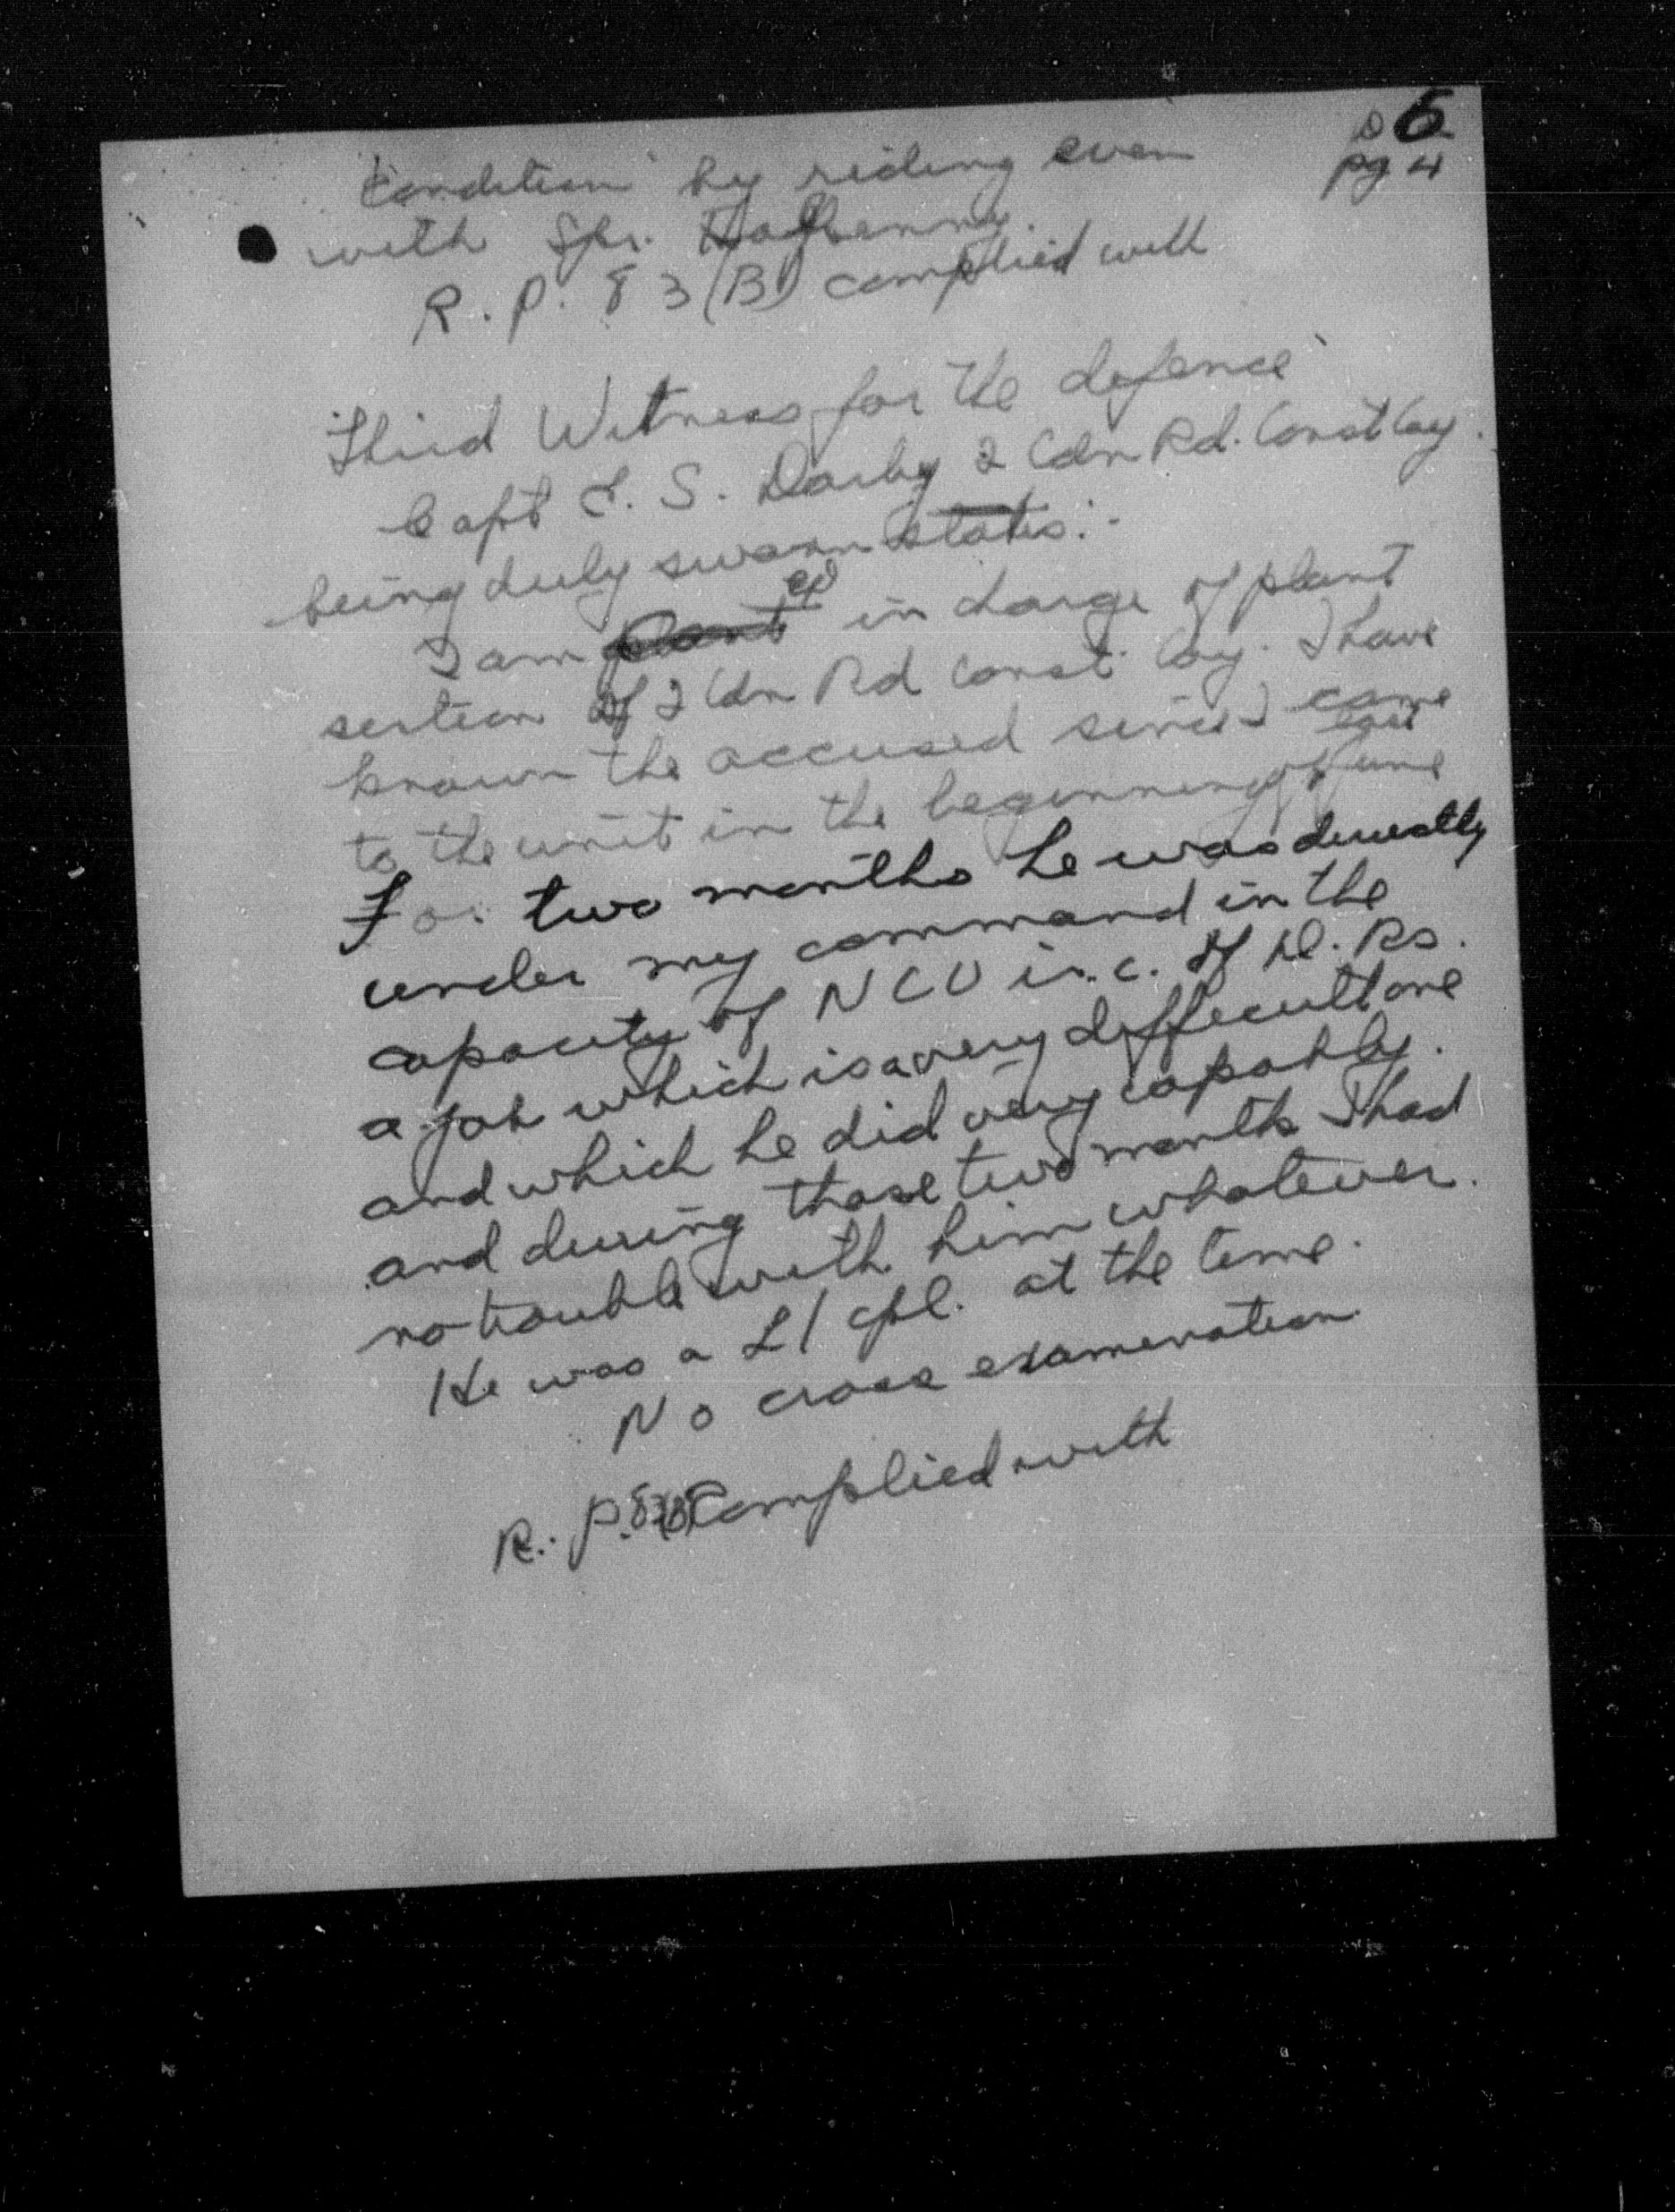 D 6
pg 4
condition by riding even
with Spr.
R. P. 83 (B) complied with
Third Witness for the defence
Capt S. Darby 2 Cdn Rd. Const Coy.
being duly sworn states:-
I am in charge of plant
section of 2 Cdn Rd Const Coy. I have
known the accused since I came
to the unit in the beginning of June
For two months he was directly
under my command in the
capacity of NCO i.c. of D. Rs.
a job which is a very difficult one
and which he did very capably.
and during those two months I had
no trouble with him whatever.
He was a L/cpl. at the time.
No cross examination
R. P. 83(B) Complied with